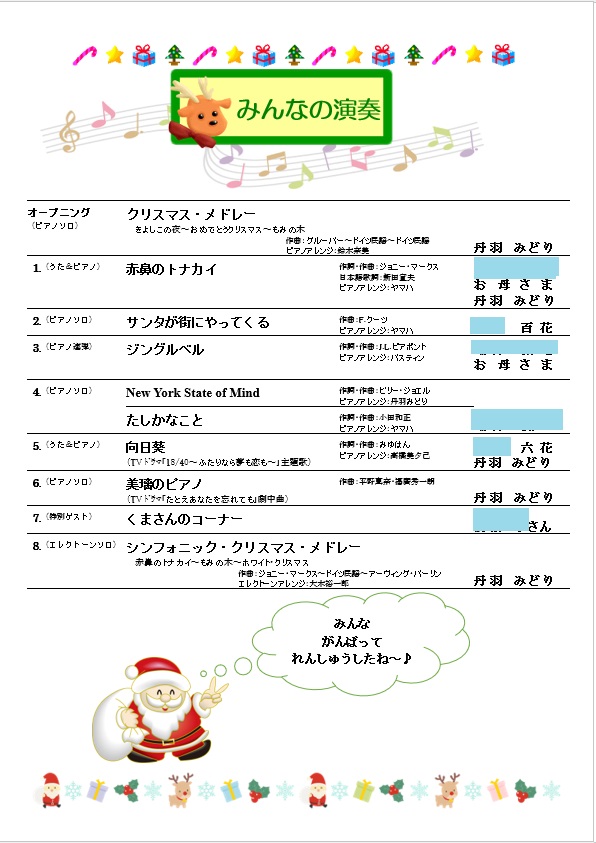 みんなの演奏
オープニング クリスマス・メドレー
（ピアノソロ） きよしこの夜～おめでとうクリスマス～もみの木
作曲：グルーバー～ドイツ民謡～ドイツ民謡
ピアノアレンジ：鈴木奈美 丹羽 みどり
1.（うた＆ピアノ） 赤鼻のトナカイ 作詞・作曲：ジョニー・マークス
日本語歌詞：新田宣夫 お 母 さ ま
ピアノアレンジ：ヤマハ 丹羽 みどり
2.（ピアノソロ） サンタが街にやってくる 作曲：F.クーツ
ピアノアレンジ：ヤマハ 百 花
3.（ピアノ連弾） ジングルベル 作詞・作曲：J.L.ピアポント
ピアノアレンジ：バスティン お 母 さ ま
4.（ピアノソロ） New York State of Mind 作詞・作曲：ビリー・ジョエル
ピアノアレンジ：丹羽みどり
たしかなこと 作詞・作曲：小田和正
ピアノアレンジ：ヤマハ
5.（うた＆ピアノ） 向日葵 作詞・作曲：みゆはん 六 花
（TVドラマ「18/40～ふたりなら夢も恋も～」主題歌） ピアノアレンジ：高橋美夕己 丹羽 みどり
6.（ピアノソロ） 美璃のピアノ 作曲：平野真奈・福廣秀一朗
（TVドラマ「たとえあなたを忘れても」劇中曲） 丹羽 みどり
7.（特別ゲスト） くまさんのコーナー さん
8.（エレクトーンソロ） シンフォニック・クリスマス・メドレー
赤鼻のトナカイ～もみの木～ホワイト・クリスマス
作曲：ジョニー・マークス～ドイツ民謡～アーヴィング・バーリン
エレクトーンアレンジ：大木裕一郎 丹羽 みどり
みんな
がんばって
れんしゅうしたね～♪